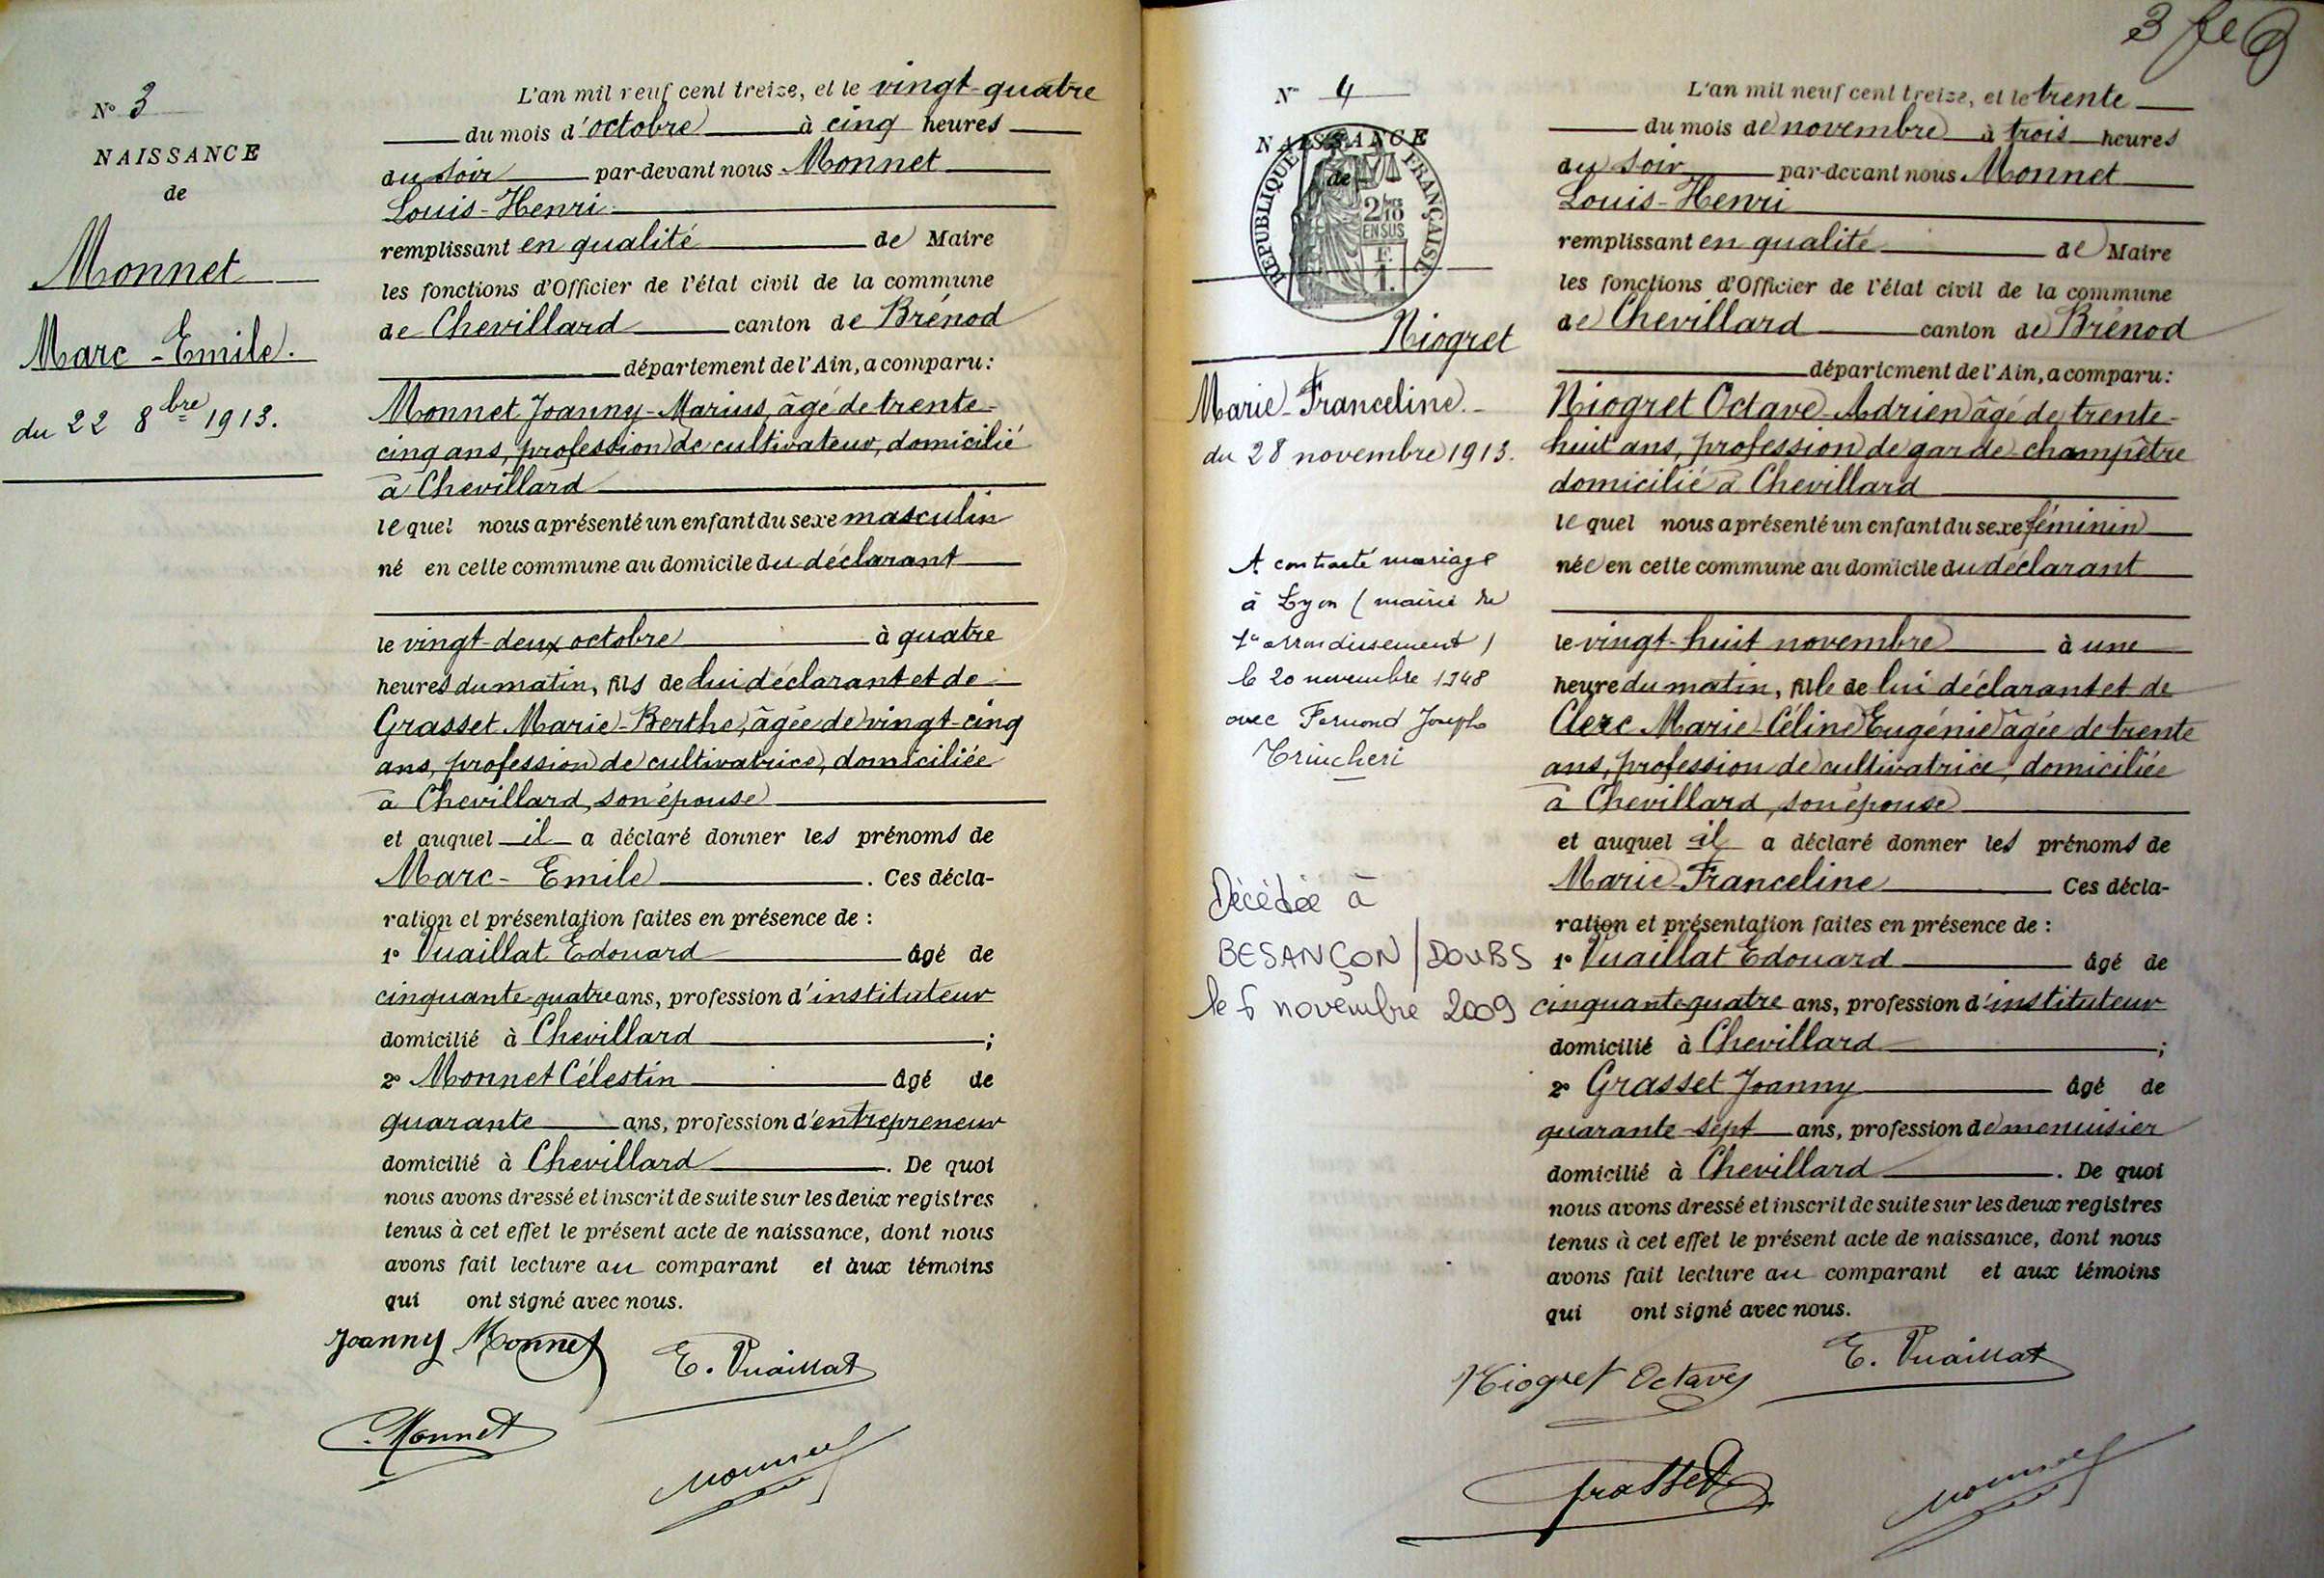 N° 3
NAISSANCE
de
Monnet
Marc-Emile.
du 22 8bre 1913.
L'an mil neuf cent treize, et le vingt-quatre
du mois d'octobre à cinq heures
du soir par-devant nous Monnet
Louis-Henri
remplissant en qualité de Maire
les fonctions d'Officier de l'état civil de la commune
de Chevillard canton de Brénod
département de l'Ain, a comparu :
Monnet Joanny-Marius, âgé de trente-
cinq ans, profession de cultivateur, domicilié
à Chevillard
lequel nous a présenté un enfant du sexe masculin
né en cette commune au domicile du déclarant
le vingt-deux octobre à quatre
heures du matin, fils de lui déclarant et de
Grasset Marie-Berthe, âgée de vingt-cinq
ans, profession de cultivatrice, domiciliée
à Chevillard, son épouse
et auquel il a déclaré donner les prénoms de
Marc-Emile. Ces décla-
ration et présentation faites en présence de :
1° Vuaillat Edouard âgé de
cinquante-quatre ans, profession d'instituteur
domicilié à Chevillard ;
2° Monnet Célestin âgé de
quarante ans, profession d'entrepreneur
domicilié à Chevillard. De quoi
nous avons dressé et inscrit de suite sur les deux registres
tenus à cet effet le présent acte de naissance, dont nous
avons fait lecture au comparant et aux témoins
qui ont signé avec nous.
Joanny Monnet
E. Vuaillat
C. Monnet
Monnet
3 fe
N° 4
NAISSANCE
de
RÉPUBLIQUE FRANÇAISE
2/10
EN SUS
F.
1.
Niogret
Marie-Franceline.
du 28 novembre 1913.
A contracté mariage
à Lyon (mairie du
1er arrondissement)
le 20 novembre 1948
avec Fernand Joseph
Trincheri
Décédée à
BESANÇON/DOUBS
le 6 novembre 2009
L'an mil neuf cent treize, et le trente
du mois de novembre à trois heures
du soir par-devant nous Monnet
Louis-Henri
remplissant en qualité de Maire
les fonctions d'Officier de l'état civil de la commune
de Chevillard canton de Brénod
département de l'Ain, a comparu :
Niogret Octave-Adrien âgé de trente-
huit ans, profession de garde-champêtre
domicilié à Chevillard
lequel nous a présenté un enfant du sexe féminin
née en cette commune au domicile du déclarant
le vingt-huit novembre à une
heure du matin, fille de lui déclarant et de
Clerc Marie-Céline Eugénie âgée de trente
ans, profession de cultivatrice, domiciliée
à Chevillard, son épouse
et auquel il a déclaré donner les prénoms de
Marie-Franceline Ces décla-
ration et présentation faites en présence de :
1° Vuaillat Edouard âgé de
cinquante-quatre ans, profession d'instituteur
domicilié à Chevillard ;
2° Grasset Joanny âgé de
quarante-sept ans, profession de menuisier
domicilié à Chevillard. De quoi
nous avons dressé et inscrit de suite sur les deux registres
tenus à cet effet le présent acte de naissance, dont nous
avons fait lecture au comparant et aux témoins
qui ont signé avec nous.
Niogret Octave
E. Vuaillat
Grasset
Monnet